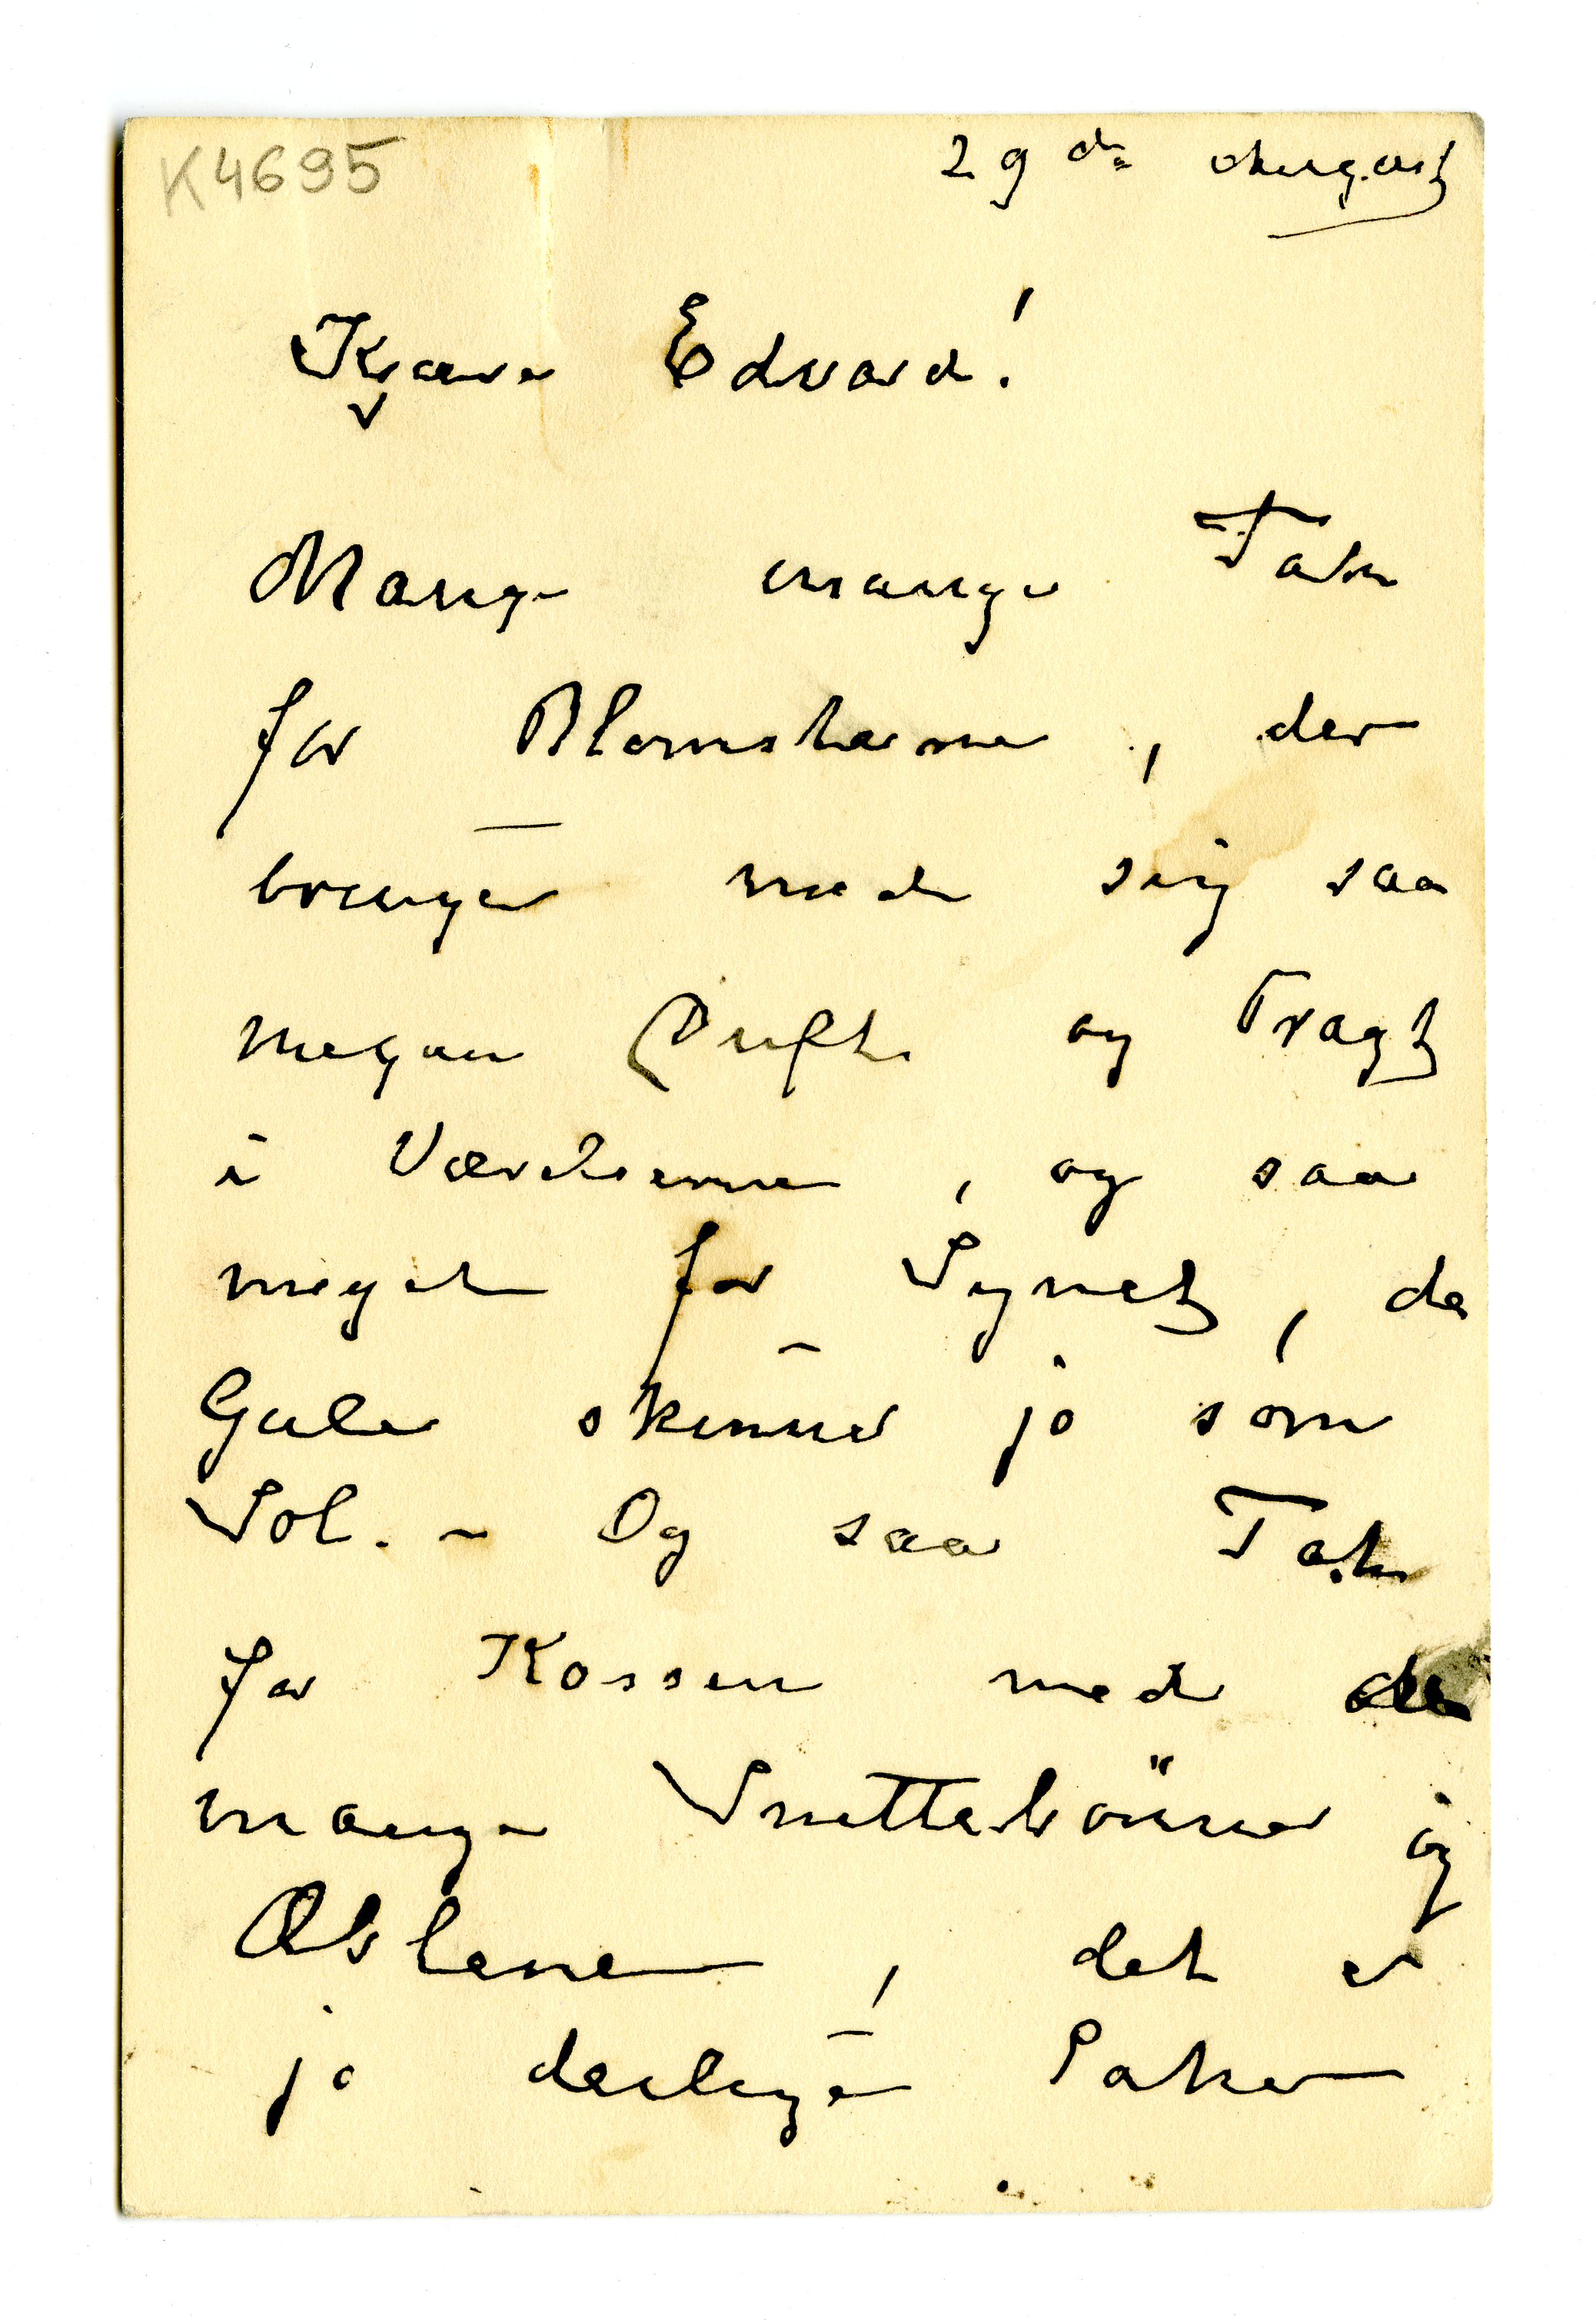 K4695
29de August
Kjære Edvard!
Mange mange Tak
for Blomsterne, der
bringer med sig saa
megen Duft og Pragt
i Værelserne, og saa
meget for Synet, de
Gule skinner jo som
Sol. – Og saa Tak
for Kassen med de
mange Snittebönner og
Æblene, det er
jo deilige Saker